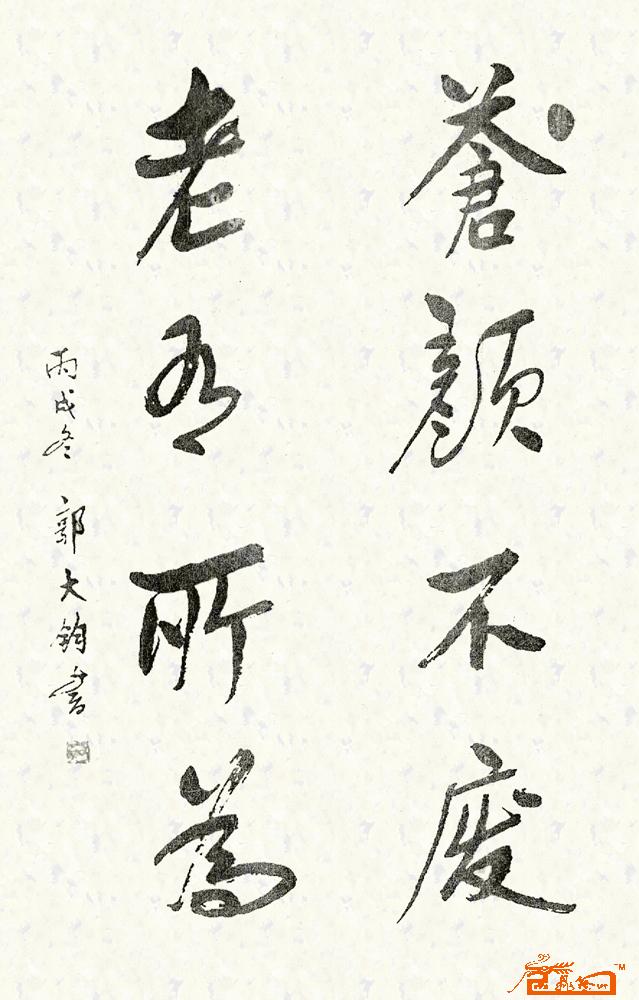 蒼顔不廢
老有所為
丙戌冬 郭大鈞書